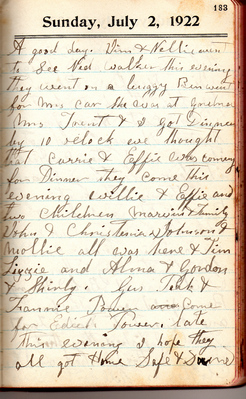 183
Sunday, July 2, 1922
A good day. Jim & Nellie went
to See Ned Walker this evening
they went on a buggy Ben went
for Mrs Car She was at
Mrs Trent & I got Dinner
by 10 oclock we thought
that Carrie & Effie was coming
for Dinner they Come this
evening Willie & Effie and
two Children Marvin & family
John & Christenia & Johnson &
Mollie all was here & Jim
Lizzie and Alma & Gordon
& Shirly. Gus Teck &
Fannie come
for Edith Tower. late
this evening I hope they
all got Home Safe &